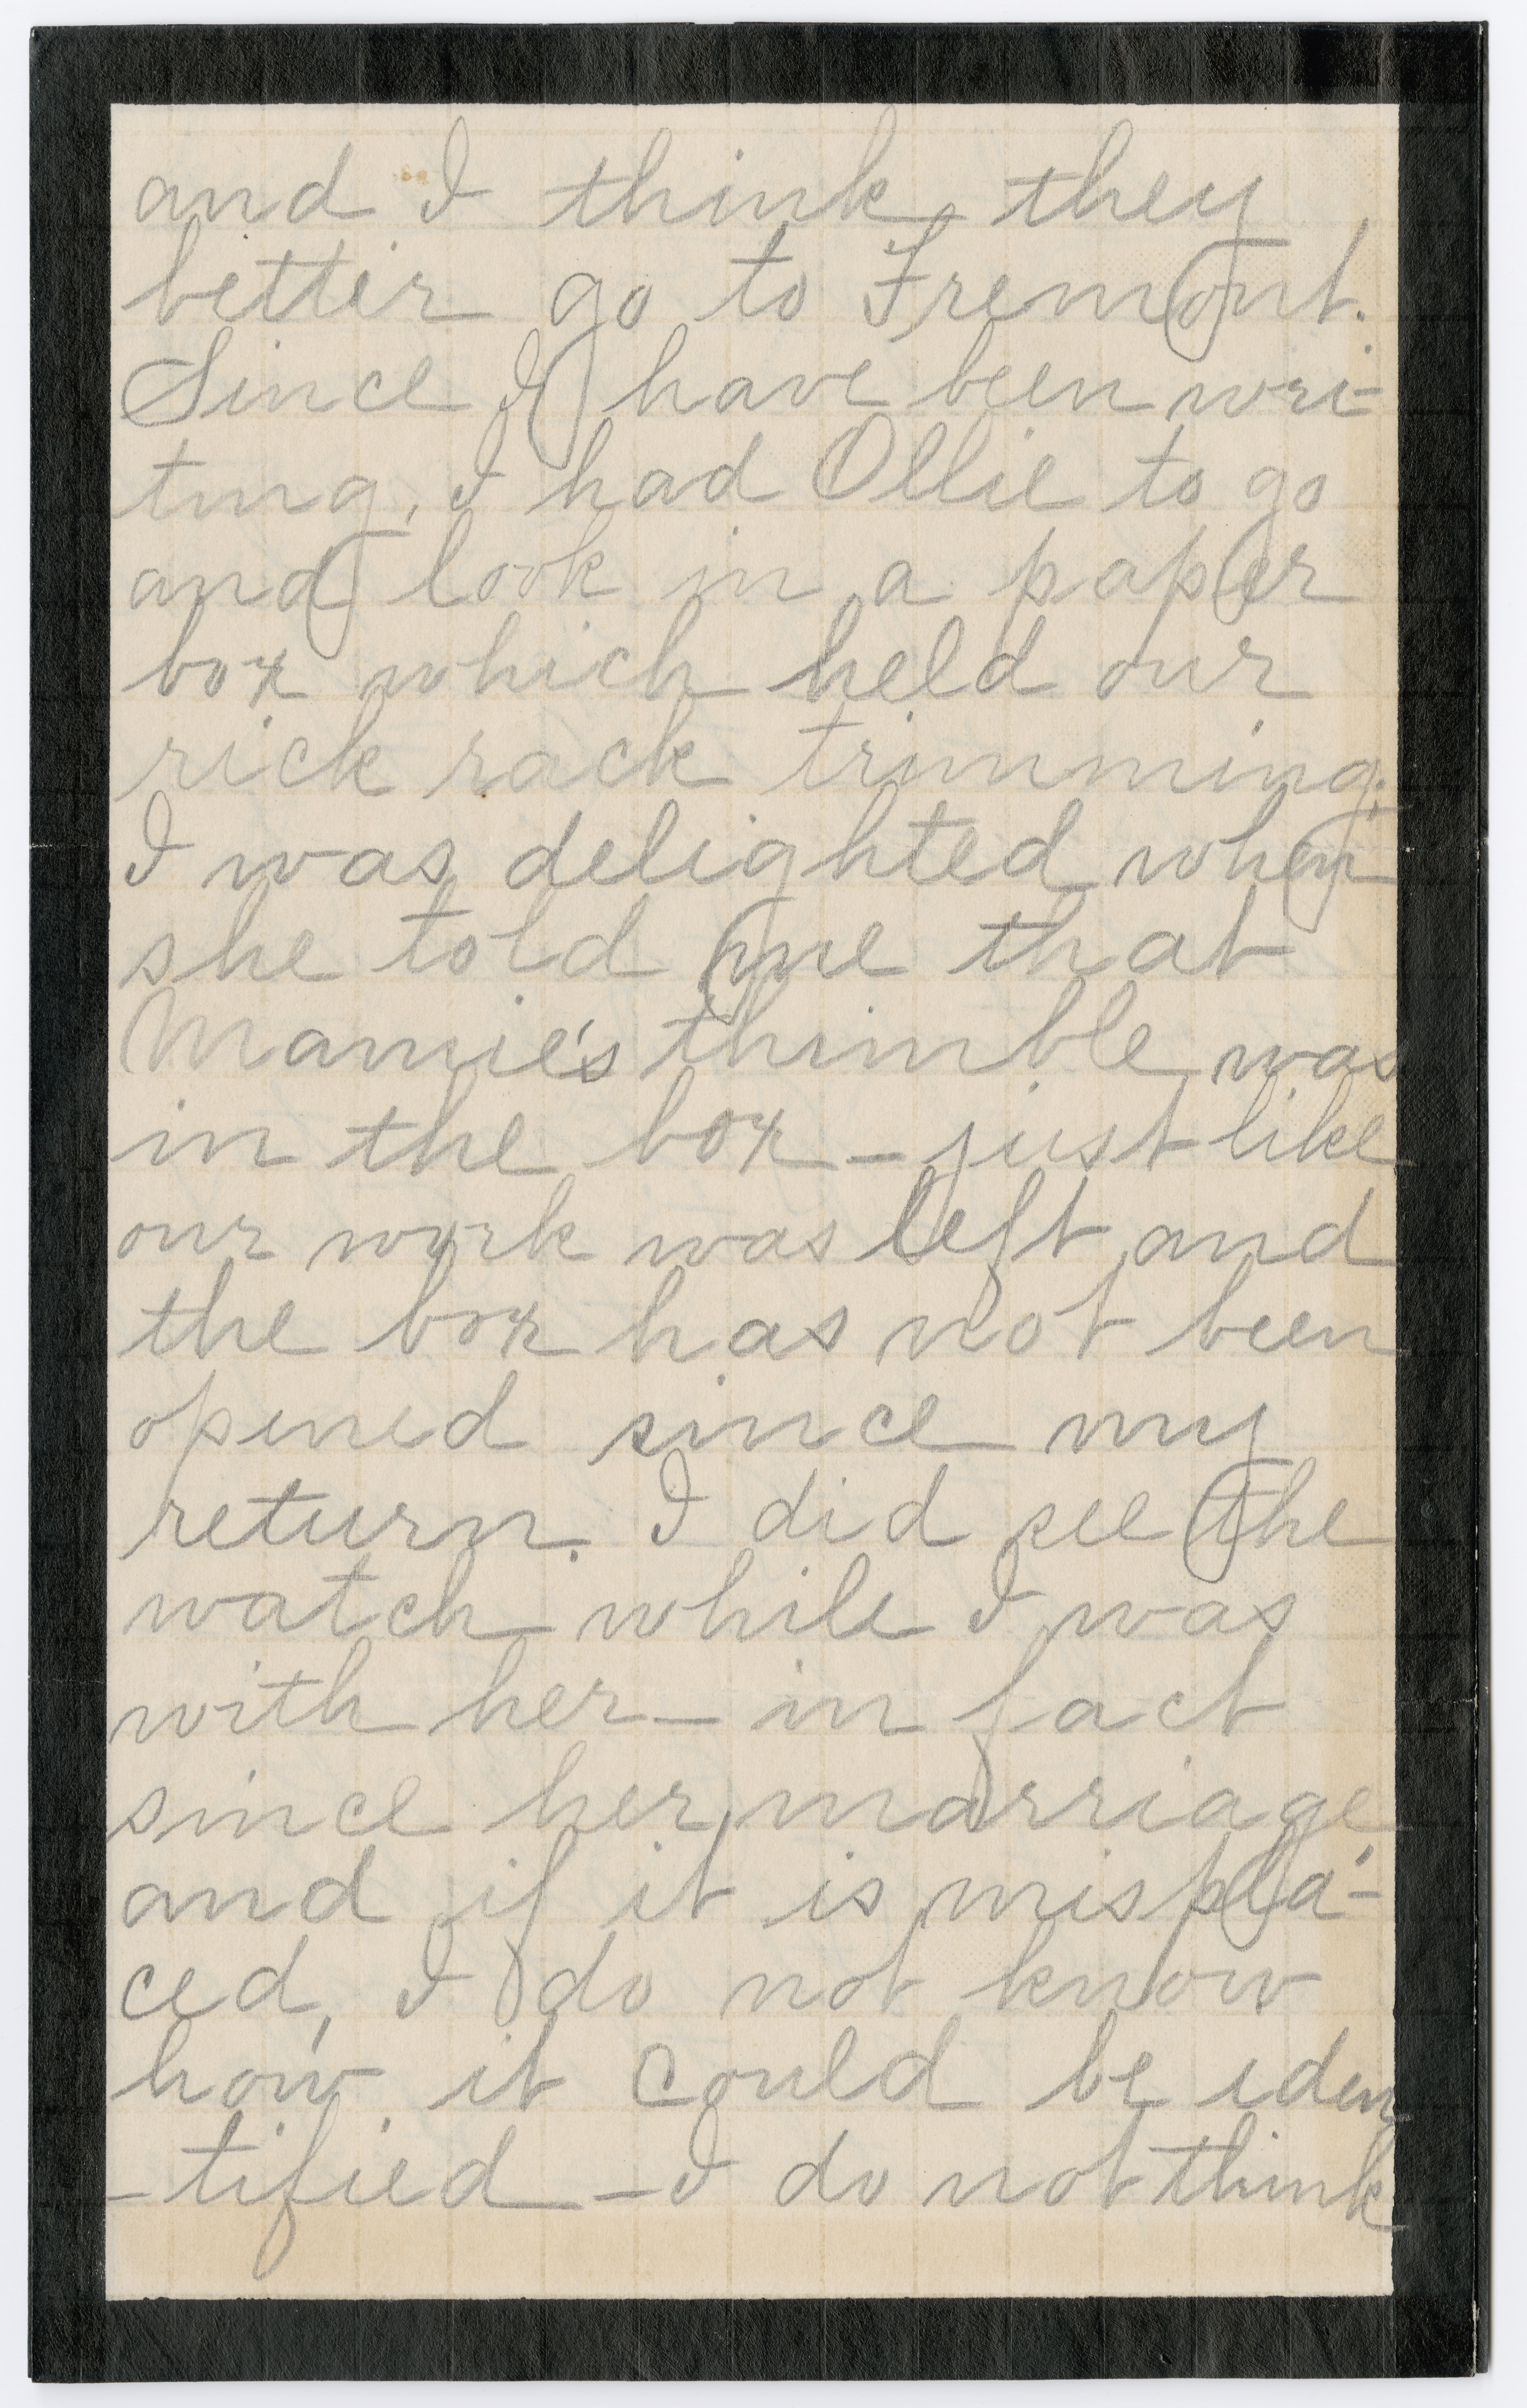 and I think they
better go to Fremont.
Since I have been wri-
ting, I had Ollie to go
and look in a paper
box which held our
rick rack trimming.
I was delighted when
she told me that
Mamie's thimble was
in the box - just like
our work was left and
the box has not been
opened since my
return. I did see the
watch while I was
with her - in fact
since her marriage
and if it is mispla-
ced, I do not know
how it could be iden
-tified - I do not think